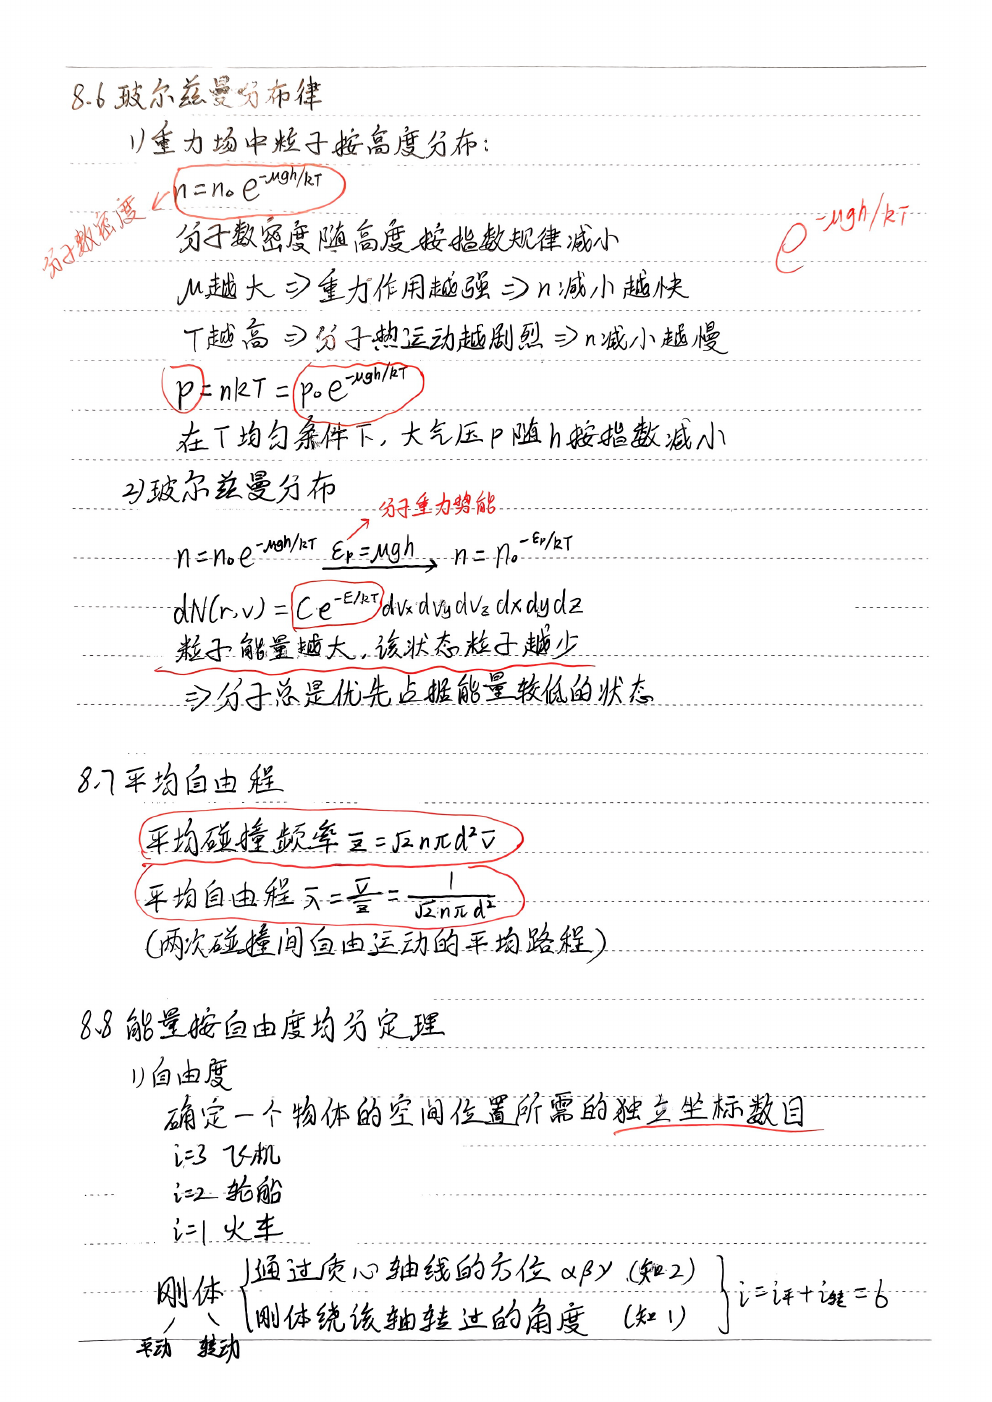 8.6 玻尔兹曼分布律
1) 重力场中粒子按高度分布:
n=n₀e^{-μgh/kT}
分子数密度
e^{-μgh/kT}
分子数密度随高度按指数规律减小
μ越大⇒重力作用越强⇒n减小越快
T越高⇒分子热运动越剧烈⇒n减小越慢
p=nkT=p₀e^{-μgh/kT}
在T均匀条件下,大气压p随h按指数减小
2) 玻尔兹曼分布
分子重力势能
n=n₀e^{-μgh/kT} εₚ=μgh → n=n₀^{-εₚ/kT}
dN(r,v)=Ce^{-E/kT}dvₓdv_ydv_zdxdydz
粒子能量越大,该状态粒子越少
⇒分子总是优先占据能量较低的状态
8.7 平均自由程
平均碰撞频率 z̄=√2nπd²v̄
平均自由程 λ̄=v̄/z̄=1/√2nπd²
(两次碰撞间自由运动的平均路程)
8.8 能量按自由度均分定理
1) 自由度
确定一个物体的空间位置所需的独立坐标数目
i=3 飞机
i=2 轮船
i=1 火车
刚体 { 通过质心轴线的方位αβγ (知2)
刚体绕该轴转过的角度 (知1) } i=i平+i转=6
平动 转动